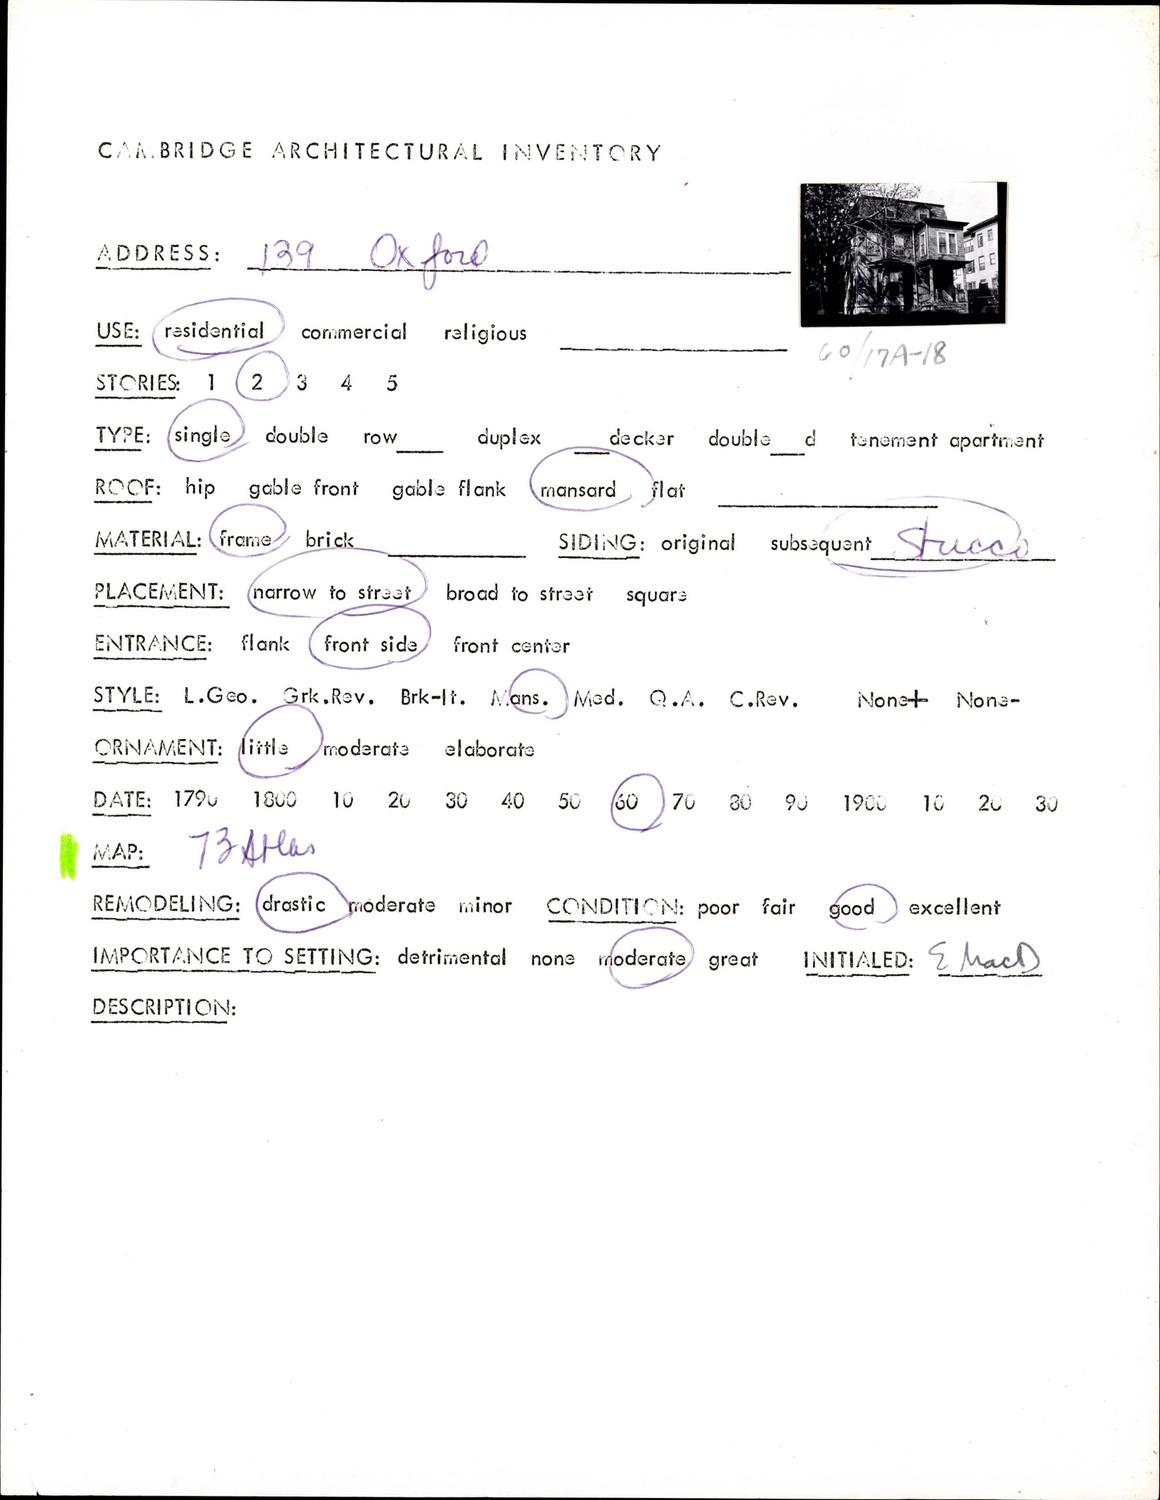 CAMBRIDGE ARCHITECTURAL INVENTORY
ADDRESS: 139 Oxford
60/17A-18
USE: residential commercial religious
STORIES: 1 2 3 4 5
TYPE: single double row___ duplex ___decker double___d tenement apartment
ROOF: hip gable front gable flank mansard flat
MATERIAL: frame brick SIDING: original subsequent Stucco
PLACEMENT: narrow to street broad to street square
ENTRANCE: flank front side front center
STYLE: L.Geo. Grk.Rev. Brk-It. Mans. Med. Q.A. C.Rev. None+ None-
ORNAMENT: little moderate elaborate
DATE: 1790 1800 10 20 30 40 50 60 70 80 90 1900 10 20 30
MAP: 73 Atlas
REMODELING: drastic moderate minor CONDITION: poor fair good excellent
IMPORTANCE TO SETTING: detrimental none moderate great INITIALED: E MacD
DESCRIPTION: